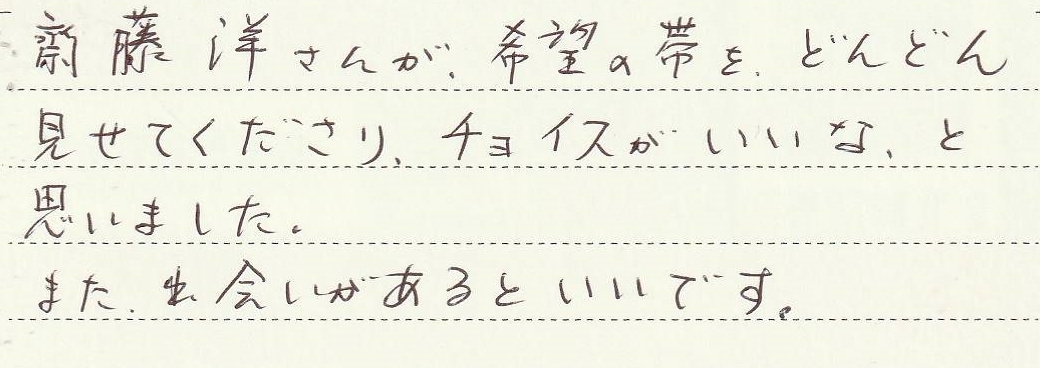 齋藤洋さんが、希望の帯を、どんどん
見せてくださり、チョイスがいいな、と
思いました。
また、出会いがあるといいです。